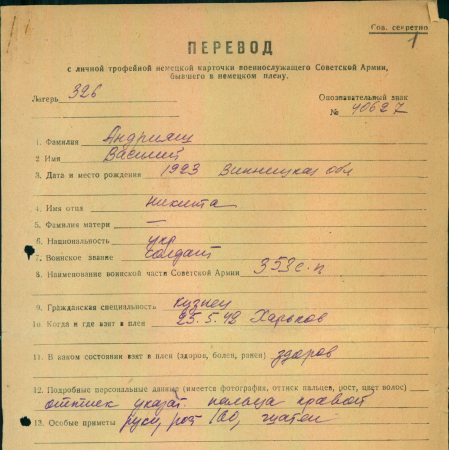 Сов. секретно
1
ПЕРЕВОД
с личной трофейной немецкой карточки военнослужащего Советской Армии,
бывшего в немецком плену.
Лагерь 326 Опознавательный знак
№ 40627
1. Фамилия Андрияш
2 Имя Василий
3. Дата и место рождения 1923 Винницкая обл
4. Имя отца Никита
5. Фамилия матери —
6. Национальность укр
7. Воинское звание солдат
8. Наименование воинской части Советской Армии 353 с.п
9. Гражданская специальность кузнец
10. Когда и где взят в плен 25.5.42 Харьков
11. В каком состоянии взят в плен (здоров, болен, ранен) здоров
12. Подробные персональные данные (имеется фотография, оттиск пальцев, рост, цвет волос)
оттиск указат. пальца правой
13. Особые приметы руки, рост 160,